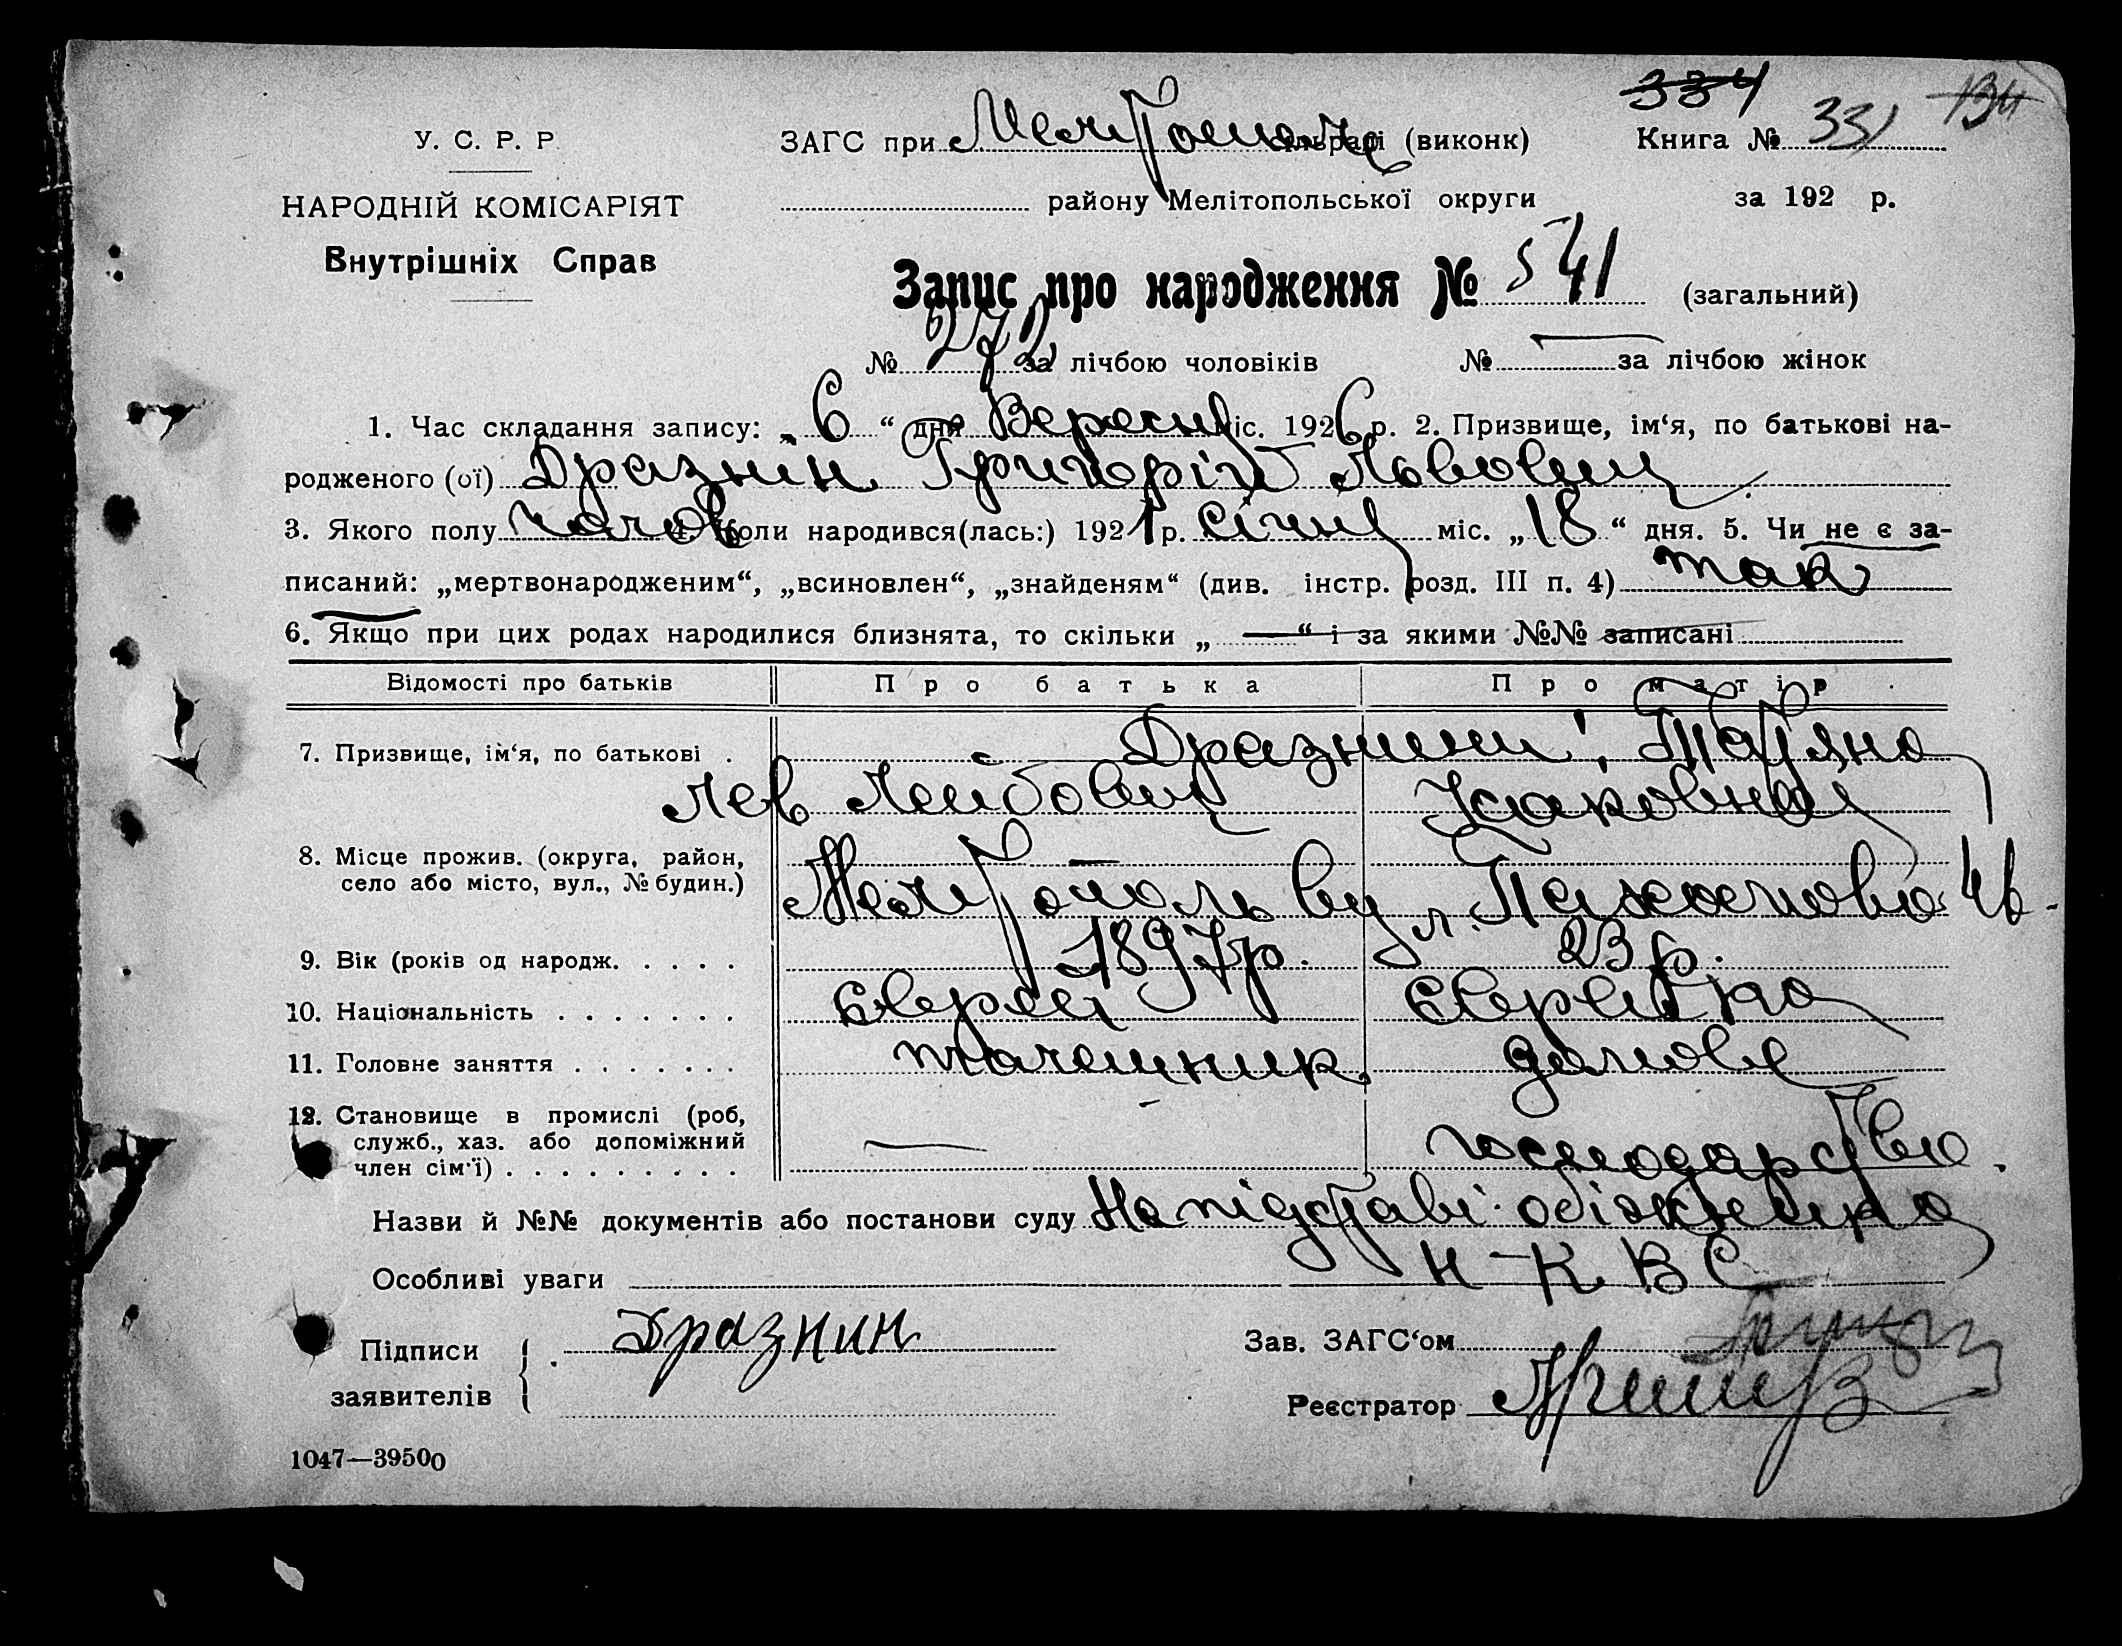 334
134
У. С. Р. Р.
ЗАГС при Мелітополь сільраді (виконк)
Книга № 331
НАРОДНІЙ КОМІСАРІЯТ
району Мелітопольської округи
за 192 р.
Внутрішніх Справ
Запис про народження № 541 (загальний)
№ 272 за лічбою чоловіків № — за лічбою жінок
1. Час складання запису: „ 6 “ дня Вересня міс. 1926 р. 2. Призвище, ім‘я, по батькові на-
родженого (ої) Дразнін Григорій Львович
3. Якого полу чолов 4. Коли народився(лась:) 1921 р. січня міс. „ 18 “ дня. 5. Чи не є за-
писаний: „мертвонародженим“, „всиновлен“, „знайденям“ (див. інстр. розд. III п. 4) так
6. Якщо при цих родах народилися близнята, то скільки „ — “ і за якими №№ записані
Відомості про батьків Про батька Про матір
7. Призвище, ім‘я, по батькові . Дразнини: Татяна
Лев Лейбович Ісаковна
8. Місце прожив. (округа, район,
село або місто, вул., № будин.) Мелітополь вул.
9. Вік (років од народж. . . . . 1897 р. 23 р.
10. Національність . . . . . . . єврей єврейка
11. Головне заняття . . . . . . . домове
12. Становище в промислі (роб,
служб., хаз. або допоміжний — господарство.
член сім‘ї) . . . . . . . . .
Назви й №№ документів або постанови суду На підставі обіжника
Особливі уваги Н К В С
Підписи
заявителів
Дразнин
Зав. ЗАГС‘ом
Реєстратор
1047—39500